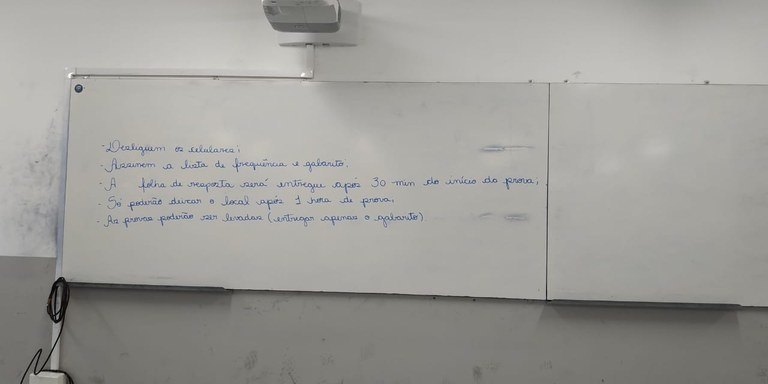 - Desliguem os celulares;
- Assinem a lista de frequência e gabarito;
- A folha de resposta será entregue após 30 min do início da prova;
- Só poderão deixar o local após 1 hora de prova;
- As provas poderão ser levadas (entregar apenas o gabarito)